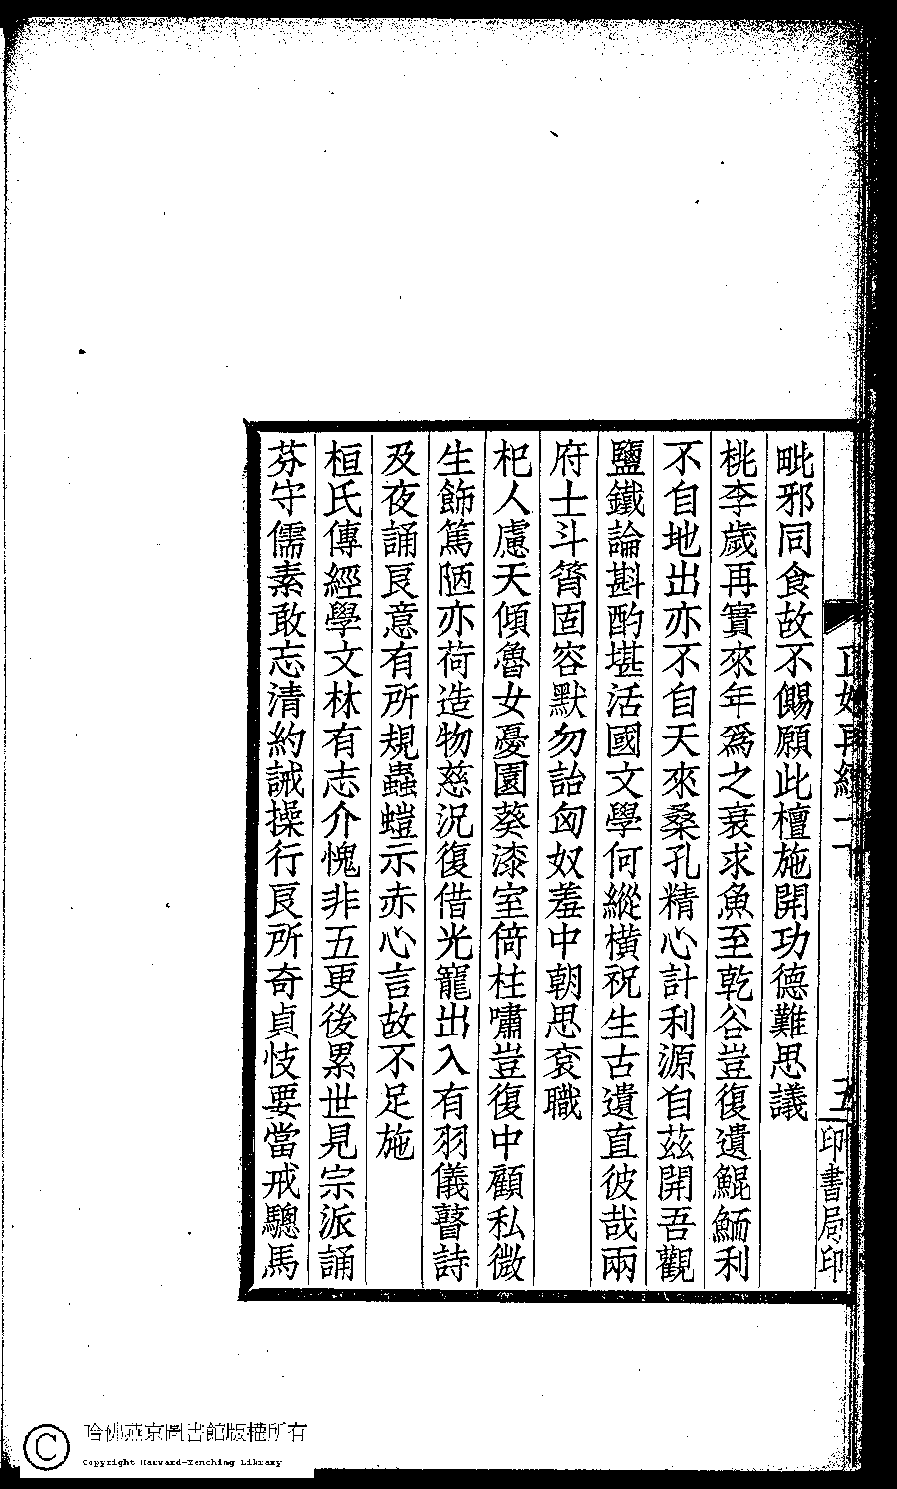 印書局印
毗邪同食故不儩願此檀施開功德難思議
桃李歲再實來年爲之衰求魚至乾谷豈復遺鯤鮞利
不自地出亦不自天來桑孔精心計利源自茲開吾觀
鹽鐵論斟酌堪活國文學何縱橫祝生古遺直彼哉兩
府士斗筲固容默勿詒匈奴羞中朝思袞職
杞人慮天傾魯女憂園葵漆室倚柱嘯豈復中顧私微
生飾篤陋亦荷造物慈況復借光寵出入有羽儀瞽詩
及夜誦艮意有所規蟲螘示赤心言故不足施
桓氏傳經學文林有志介愧非五更後累世見宗派誦
芬守儒素敢忘清約誡操行艮所奇貞忮要當戒驄馬
哈佛燕京圖書館版權所有
Copyright Harvard-Yenching Library